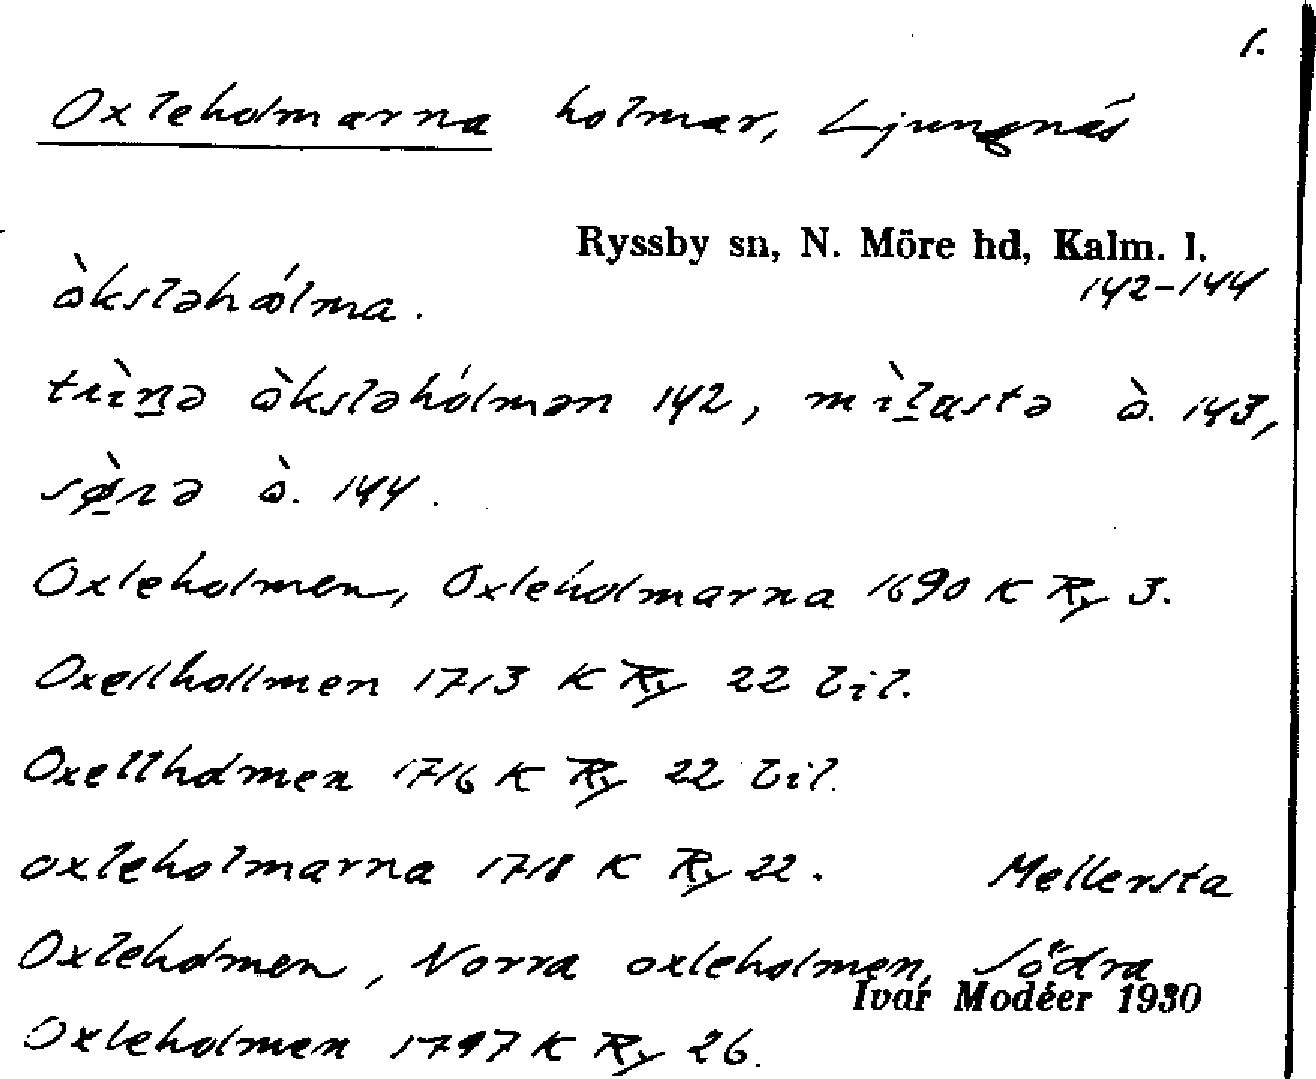 1.
Oxleholmarna holmar, Ljungnäs
Ryssby sn, N. Möre hd, Kalm. l.
142-144
òksləhólma.
òksləhólmən 142, ò. 143,
ò. 144.
Oxleholmen, Oxleholmarna 1690 K Ry 3.
Oxellhollmen 1713 K Ry 22 bil.
Oxellholmen 1716 K Ry 22 bil.
oxleholmarna 1718 K Ry 22. Mellersta
Oxleholmen, Norra oxleholmen, Södra
Ivar Modéer 1930
Oxleholmen 1797 K Ry 26.